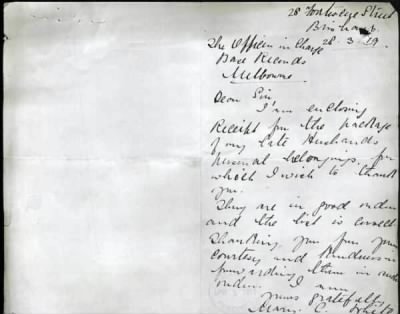 28 Street
Brisbane
28. 3. 19.
The Officer in Charge
Base Records
Melbourne
Dear Sir
I am enclosing
Receipt for the package
of my late Husbands
personal belongings, for
which I wish to thank
you.
They are in good order
and the list is correct
Thanking you for your
courtesy and kindness in
forwarding them in such
order. I am
yours gratefully
C.